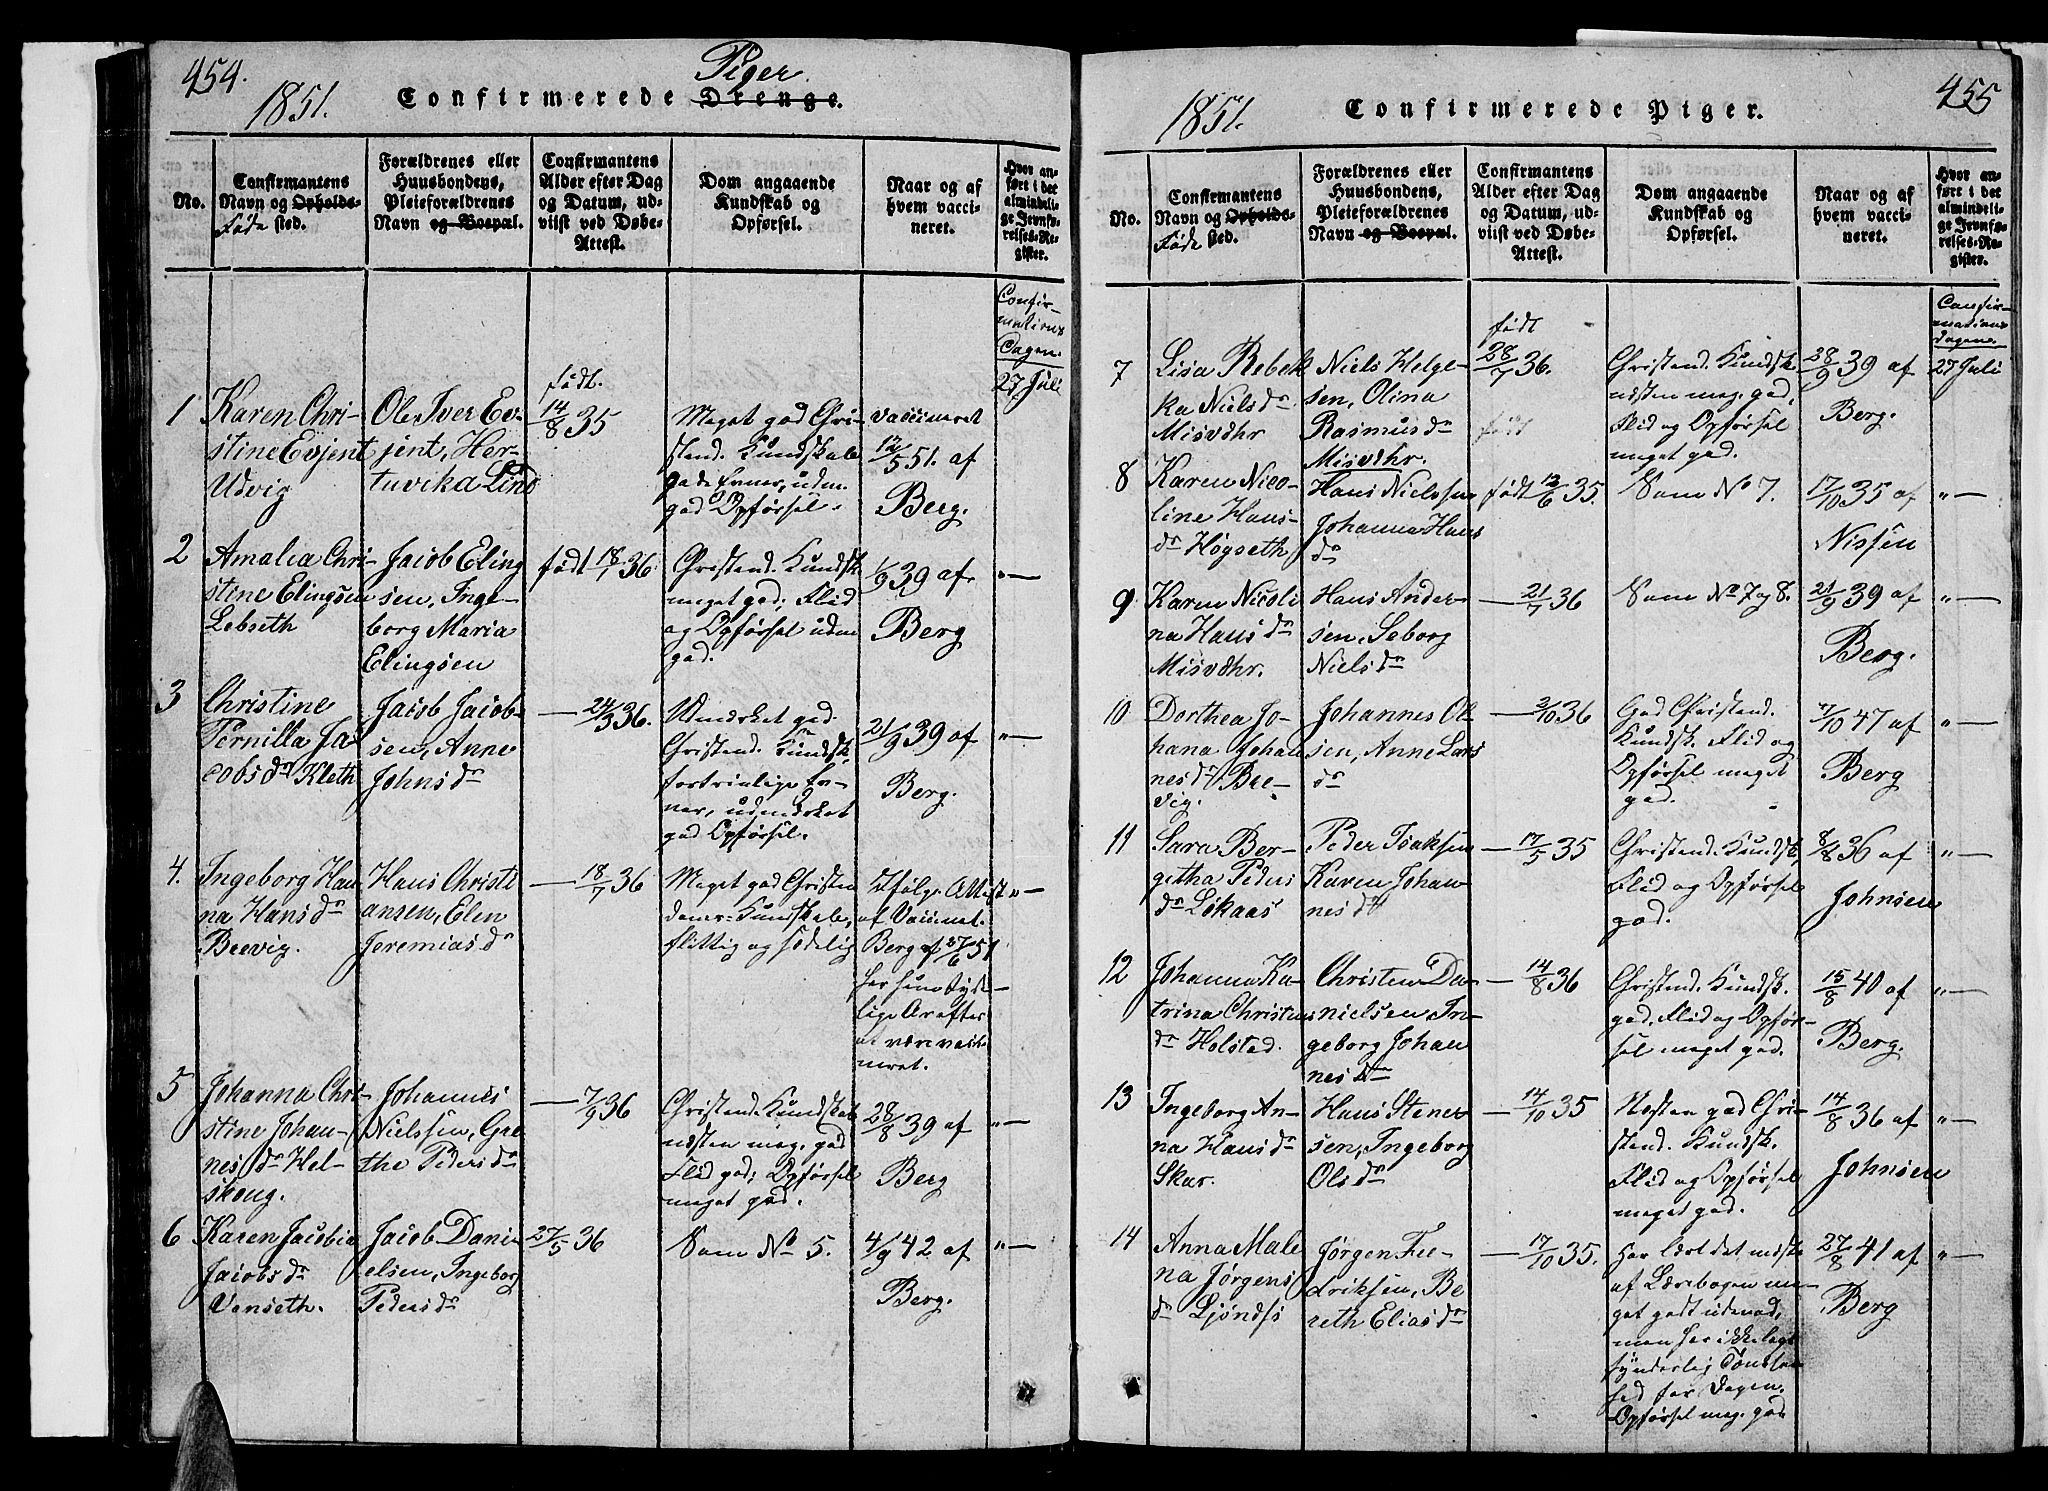 454.
1851.
Piger.
Confirmerede Drenge.
No.
Confirmantens
Navn og Opholds-
Føde sted.
Forældrenes eller
Huusbondens,
Pleieforældrenes
Navn og Bopæl.
Confirmantens
Alder efter Dag
og Datum, ud-
viist ved Døbe-
Attest.
Dom angaaende
Kundskab og
Opførsel.
Naar og af
hvem vacci-
neret.
Hvor an-
ført i det
almindeli-
ge Jevnfø-
relses-Re-
gister.
Confir-
mations
Dagen.
27 Juli
1
Karen Chri-
stine Evjent
Udvig
Ole Iver Ev-
jent, Her-
tuvika Lind
født.
14/8 35
Meget god Chri-
stend. Kundskab
gode Evner, udm.
god Opførsel.
vaccineret
12/5 51. af
Berg.
2
Amalia Chri-
stine Elingsen
Lebseth
Jacob Eling
sen, Inge-
borg Maria
Elingsen
født 18/1 36
Christend. Kundsk
meget god; Flid
og Opførsel udm
god.
1/9 39 af
Berg
"—
3
Christine
Pernilla Ja
cobs dr Kleth
Jacob Jacob-
sen, Anne
Johns dr
— 24/3 36.
Udmærket god
Christend. Kundsk,
fortrinlige Ev-
ner, udmærket
god Opførsel.
21/9 39 af
Berg.
"—
4.
Ingeborg Han
na Hans dr
Brevig.
Hans Christi
ansen, Elen
Jeremias dr
— 18/7 36
Meget god Christen
doms-Kundskab,
flittig og sædelig
Ifølge Attest
af Vaccinat.
Berg af 27/6 51
har hun tyde-
lige Ar efter
at være vacci-
neret.
"—
5
Johanna Chri-
stine Johan-
nes dr Hel-
skoug.
Johannes
Nielssen, Gre
the Peders dr
— 7/9 36
Christend. Kundskab
næsten meg. god
Flid god; Opførsel
meget god.
28/8 39 af
Berg
"—
6
Karen Jacobia
Jacobs dr
Venseth.
Jacob Dani-
elsen, Ingeborg
Peders dr
27/5 36
Som No 5.
4/9 42 af
Berg.
"—
455
1851.
Confirmerede Piger.
No.
Confirmantens
Navn og Opholds-
Føde sted.
Forældrenes eller
Huusbondens,
Pleieforældrenes
Navn og Bopæl.
Confirmantens
Alder efter Dag
og Datum, ud-
viist ved Døbe-
Attest.
Dom angaaende
Kundskab og
Opførsel.
Naar og af
hvem vacci-
neret.
Hvor an-
ført i det
almindeli-
ge Jevnfø-
relses-Re-
gister.
Confir-
mations
dagen.
27 Juli
7
Lisa Rebek
ka Niels dr
Misvdhr
Niels Helge-
sen, Olina
Rasmus dr
Misvdhr.
født
28/7 36.
født
Christend. Kundsk
næsten meg. god,
Flid og Opførsel
meget god.
28/9 39 af
Berg.
8
Karen Nico-
line Hans-
dr Høgseth
Hans Nielssen
Johanna Hans
dr
født 12/6 35.
Som No 7.
17/10 35 af
Nissen
"—
9
Karen Nicoli
na Hans dr
Misvdhr.
Hans Ander-
sen, Seborg
Niels dr
— 21/7 36
Som No 7 og 8.
21/9 39 af
Berg.
"—
10
Dorthea Jo-
hana Johan
nes dr Bre-
vig.
Johannes Ol
sen, Anne Lars
dr
— 2/10 36
God Christend.
Kundsk. Flid og
Opførsel meget
god.
7/10 47 af
Berg
"—
11
Sara Ber-
getha Peders
dr Løkaas
Peder Isaksen
Karen Johan-
nes dr
— 17/5 35
Christend. Kundsk,
Flid og Opførsel
god.
8/8 36 af
Johnsen
"—
12
Johanna Ka-
trina Christens
dr Holstad.
Christen Da-
nielsen In-
geborg Johan
nes dr
— 14/8 36
Christend. Kundsk.
god, Flid og Opfør-
sel meget god.
15/8 40 af
Berg.
"—
13
Ingeborg An-
na Hans dr
Skar.
Hans Stener
sen, Ingeborg
Ols dr
— 14/10 35
Næsten god Chri-
stend. Kundsk.
Flid og Opførsel
meget god.
14/8 36 af
Johnsen
"—
14
Anna Male
na Jørgens
dr Ljøndsi
Jørgen Fre-
driksen, Be
reth Elias dr
— 17/10 35.
Har lært det meste
af Lærebogen me-
get godt udenad,
men har ikke lagt
synderlig
for Dagen.
Opførsel meg. god
27/8 41 af
Berg
"—